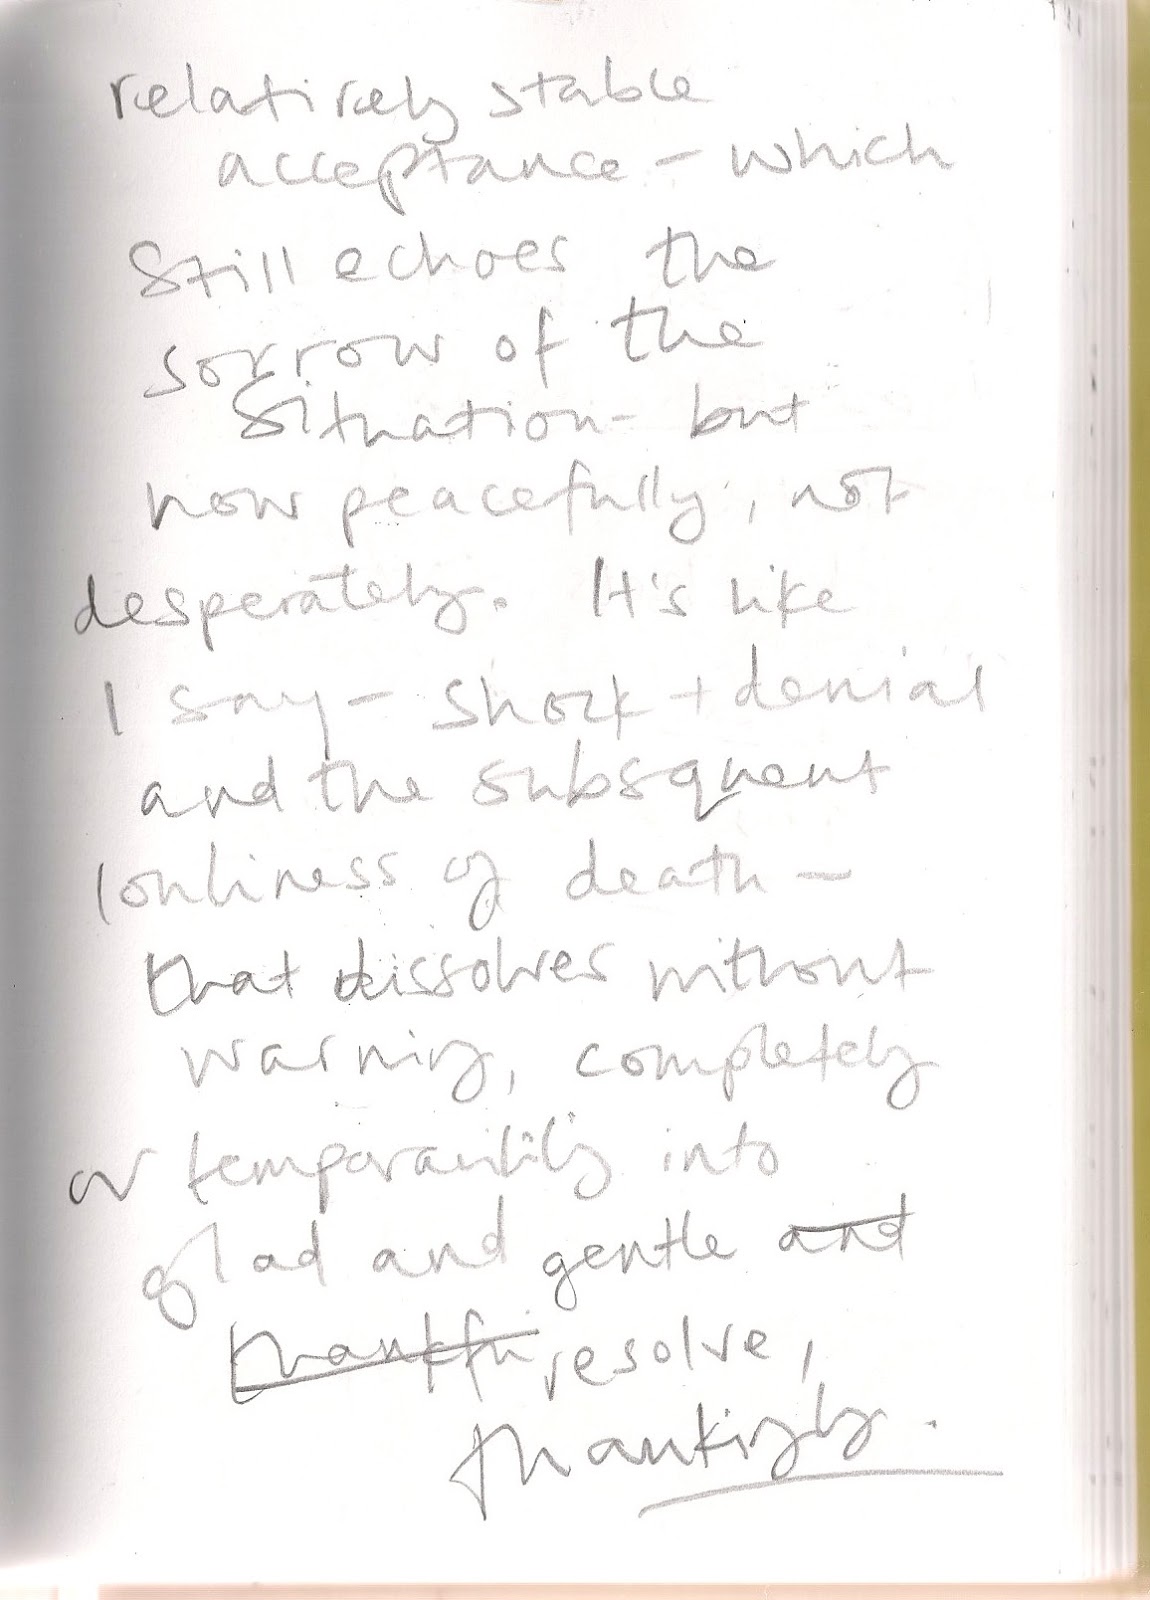 relatively stable
acceptance – which
Still echoes the
sorrow of the
Situation – but
now peacefully, not
desperately. It's like
I say – shock + denial
and the subsquent
lonliness of death –
that dissolves without
warning, completely
or temporarilily into
glad and gentle and
thankful resolve,
thankingly.